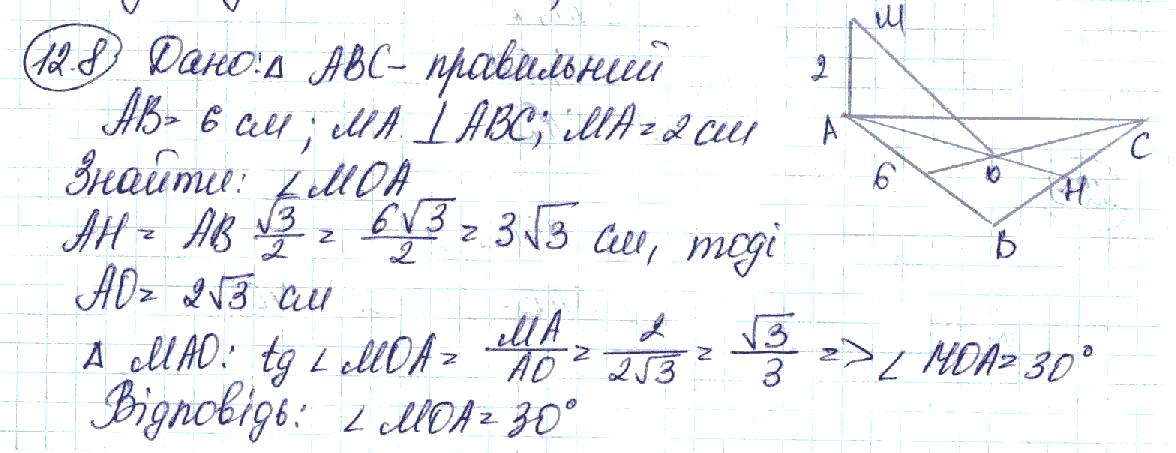 12.8 Дано: Δ ABC – правильний
AB = 6 см; MA ⊥ ABC; MA = 2 см
Знайти: ∠MOA
AH = AB √3/2 = 6√3/2 = 3√3 см, тоді
AO = 2√3 см
Δ MAO: tg ∠MOA = MA/AO = 2/2√3 = √3/3 => ∠MOA = 30°
Відповідь: ∠MOA = 30°
M
2
A
C
6
O
H
B